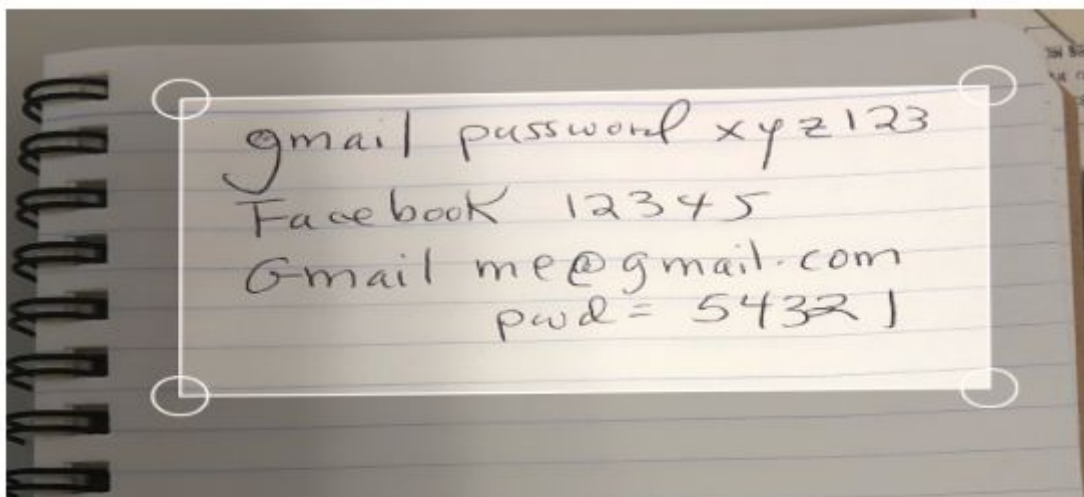 gmail password xyz123
Facebook 12345
Gmail me@gmail.com
pwd = 54321